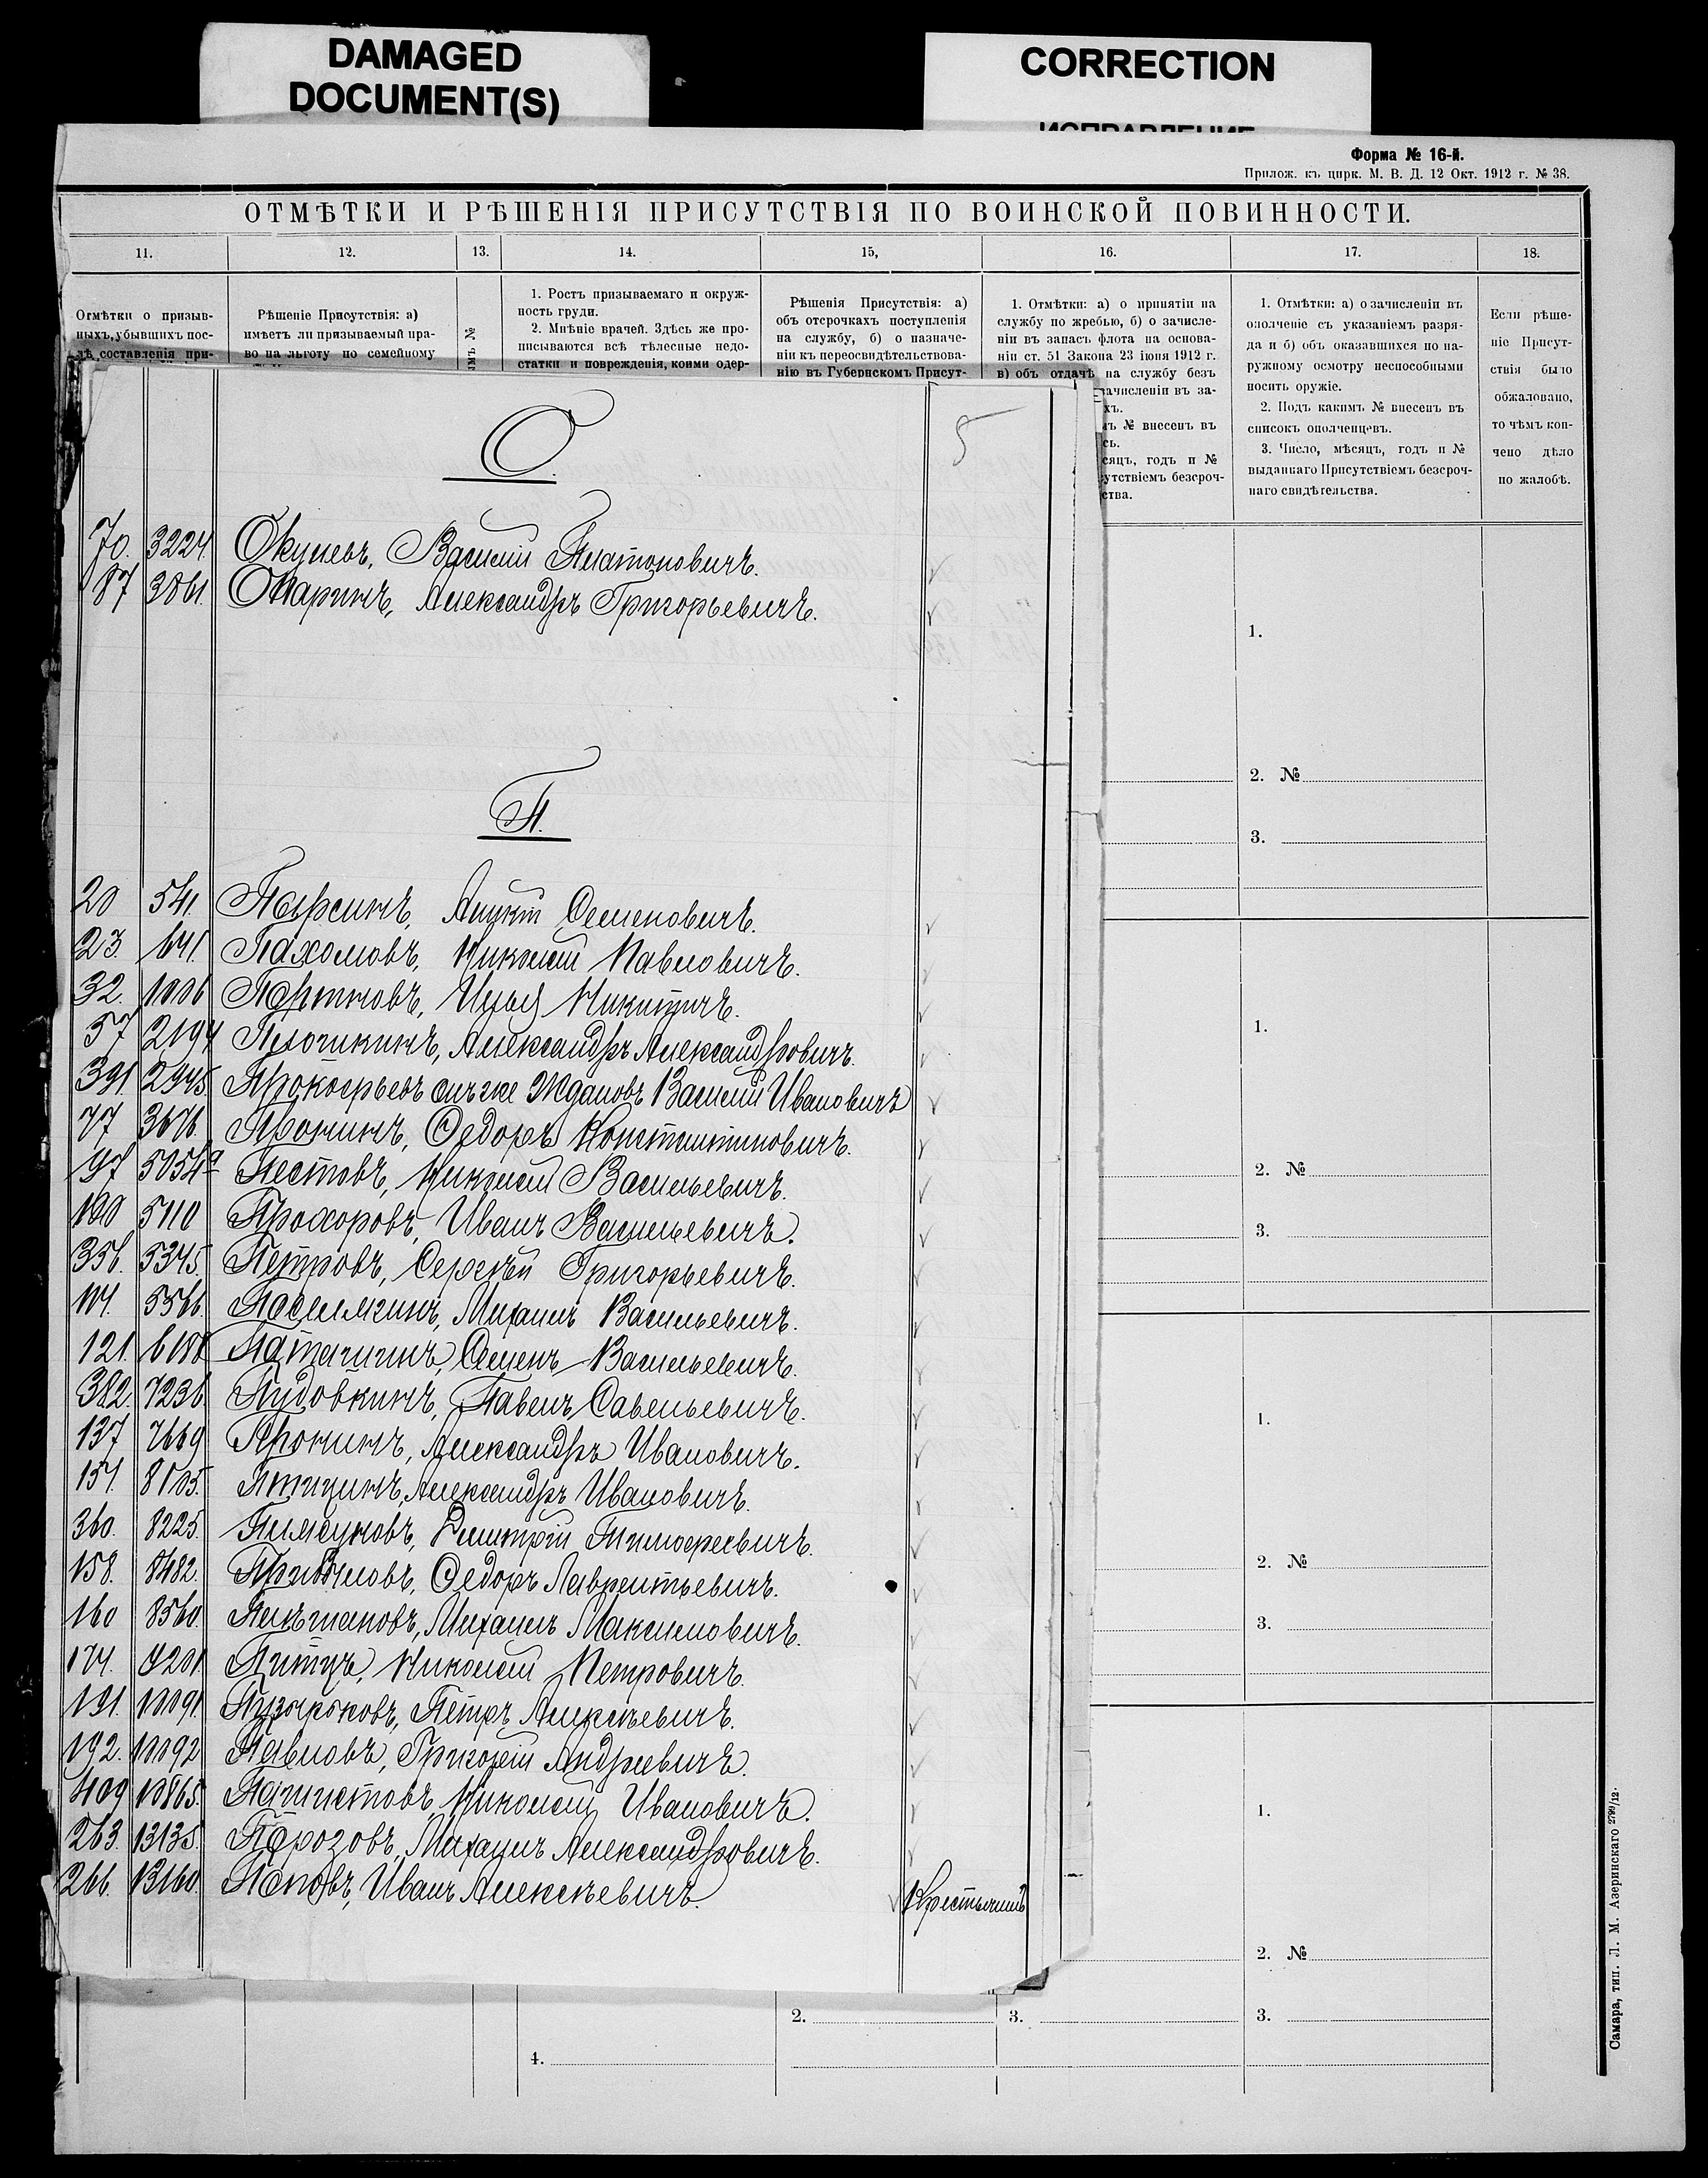 DAMAGED
DOCUMENT(S)
CORRECTION
ИСПРАВЛЕНИЕ
Форма № 16-й.
Прилож. къ цирк. М. В. Д. 12 Окт. 1912 г. № 38.
ОТМѢТКИ И РѢШЕНІЯ ПРИСУТСТВІЯ ПО ВОИНСКОЙ ПОВИННОСТИ.
11. 12. 13. 14. 15, 16. 17. 18.
Отмѣтки о призыв-
ныхъ, убывшихъ пос-
лѣ составленія при-
Рѣшеніе Присутствія: а)
имѣетъ ли призываемый пра-
во на льготу по семейному
№
1. Ростъ призываемаго и окруж-
ность груди.
2. Мнѣніе врачей. Здѣсь же про-
писываются всѣ тѣлесные недо-
статки и поврежденія, коими одер-
Рѣшенія Присутствія: а)
объ отсрочкахъ поступленія
на службу, б) о назначе-
ніи къ переосвидѣтельствова-
нію въ Губернскомъ Присут-
1. Отмѣтки: а) о принятіи на
службу по жребью, б) о зачисле-
ніи въ запасъ флота на основа-
ніи ст. 51 Закона 23 іюня 1912 г.
в) объ отдачѣ на службу безъ
зачисленіи въ за-
хъ.
мъ № внесенъ въ
сь.
сяцъ, годъ и №
утствіемъ безсроч-
ства.
1. Отмѣтки: а) о зачисленіи въ
ополченіе съ указаніемъ разря-
да и б) объ оказавшихся по на-
ружному осмотру неспособными
носить оружіе.
2. Подъ какимъ № внесенъ въ
списокъ ополченцевъ.
3. Число, мѣсяцъ, годъ и №
выданнаго Присутствіемъ безсроч-
наго свидѣтельства.
Если рѣше-
ніе Присут-
ствія было
обжаловано,
то чѣмъ кон-
чено дѣло
по жалобѣ.
О. 5
70. 3224. Окуневъ, Василій Платоновичъ.
87 3861. Опаринъ, Александръ Григорьевичъ.
П.
20 541. Паршинъ, Семеновичъ.
23. 641. Пахомовъ, Николай Павловичъ.
32. 1006 Портновъ, Илья Никитичъ.
57 2194 Александръ Александровичъ.
391. 2945. Прокофьевъ онъ же Ждановъ Василій Ивановичъ
77 3676. Пронинъ, Федоръ Константиновичъ.
97 5054а Пестовъ, Николай Васильевичъ.
100 5110 Прохоровъ, Иванъ Васильевичъ.
356. 5345. Петровъ, Сергѣй Григорьевичъ.
5566. Михаилъ Васильевичъ.
121. 6180 Семенъ Васильевичъ.
382. 7236. Пудовкинъ, Павелъ Савельевичъ.
137 7669 Пронинъ, Александръ Ивановичъ.
151. 8105. Птицинъ, Александръ Ивановичъ.
360. 8225. Димитрій Тимофеевичъ.
158. 8482. Федоръ Лаврентьевичъ.
160 8560. Михаилъ Максимовичъ.
171. 9201. Николай Петровичъ.
191. 10091. Петръ Алексѣевичъ.
192. 10092 Павловъ, Григорій Андреевичъ.
409 10865. Николай Ивановичъ.
263. 13135. Порозовъ, Михаилъ Александровичъ.
266. 13160. Поповъ, Иванъ Алексѣевичъ. Крестьянинъ
1.
2. №
3.
1.
2. №
3.
1.
2. №
3.
1.
2. №
4. 2. 3. 3.
Самара, тип. Л. М. Азеринскаго 2799/12.